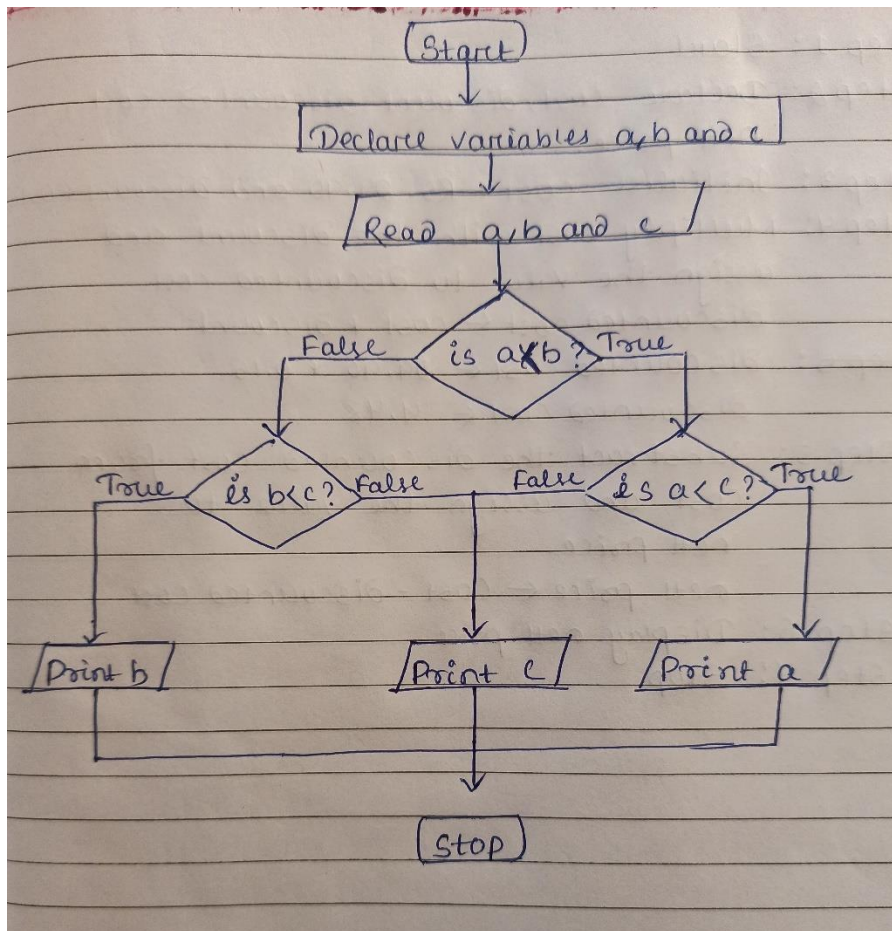 Start
Declare variables a, b and c
Read a, b and c
is a<b?
False
True
is b<c?
True
False
is a<c?
False
True
Print b
Print c
Print a
Stop